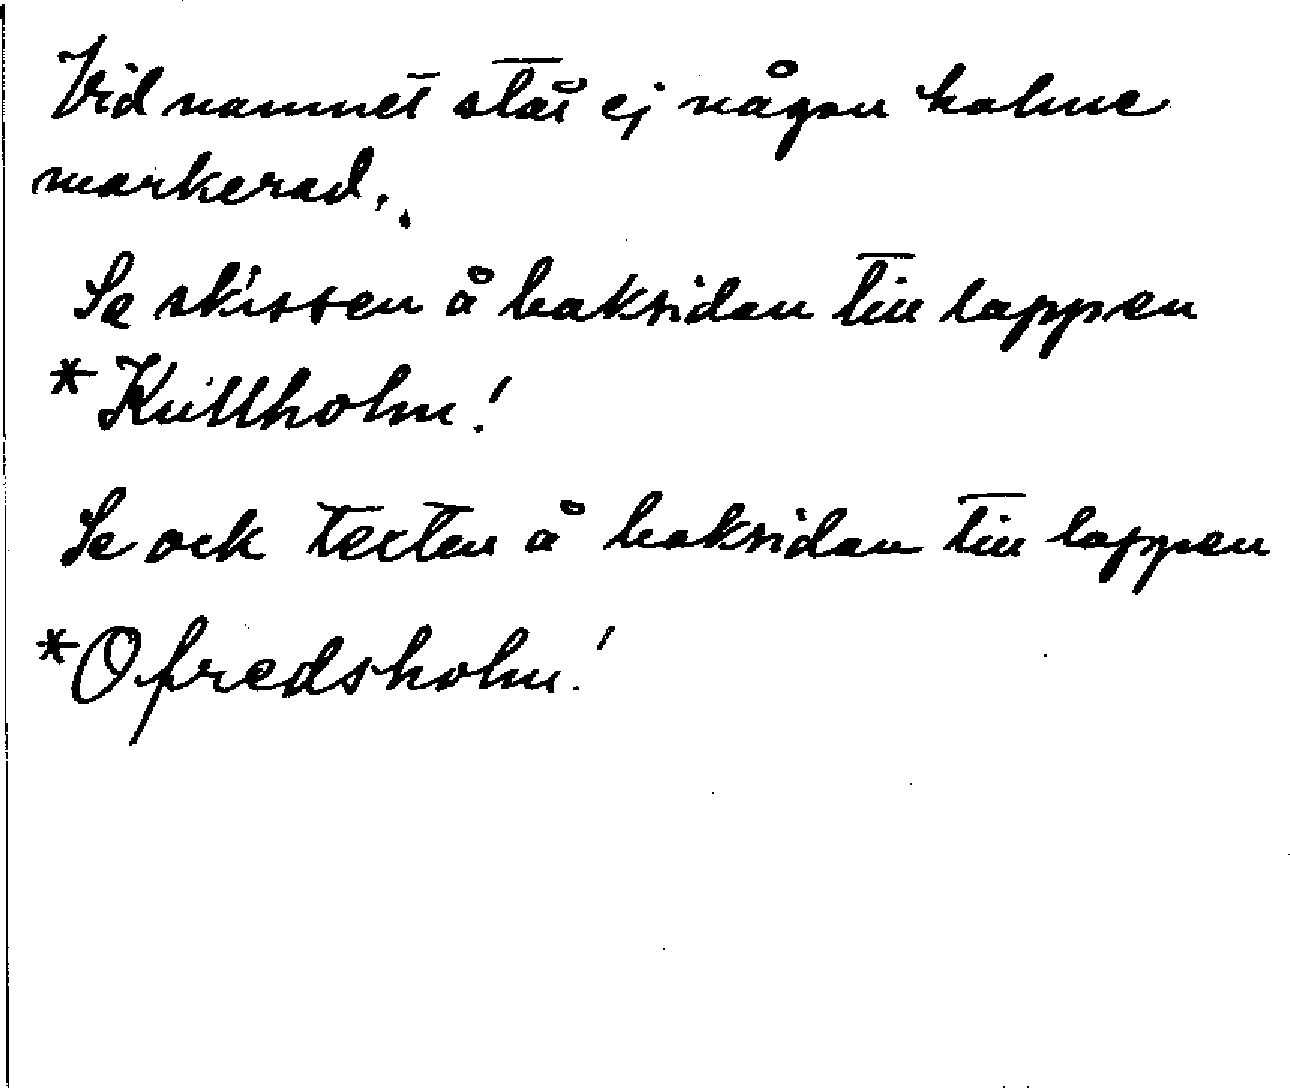 Vid namnet står ej någon holme
markerad.
Se skissen å baksidan till lappen
*Kvillholm!
Se ock texten å baksidan till lappen
*Ofredsholm!